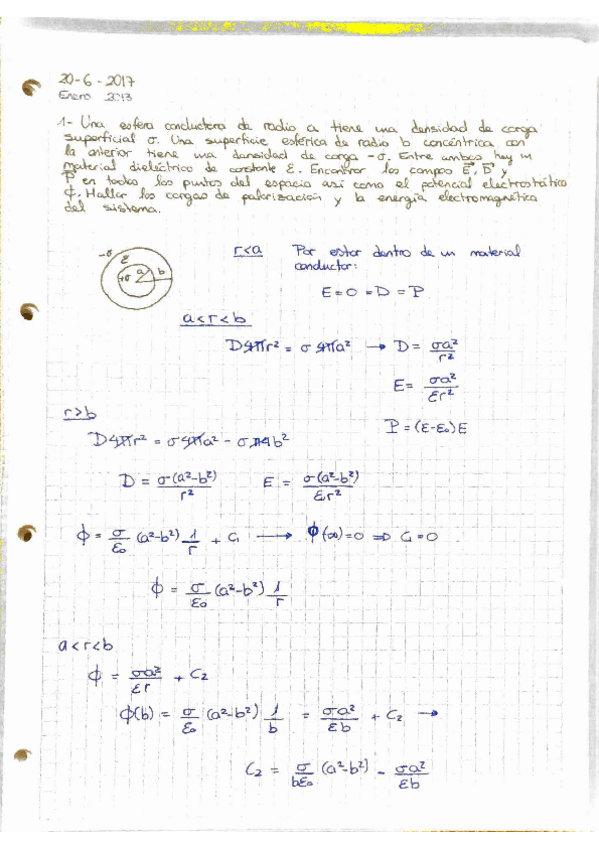 20-6-2017
Enero 2013
1- Una esfera conductora de radio a tiene una densidad de carga
superficial σ. Una superficie esférica de radio b concéntrica con
la anterior tiene una densidad de carga -σ. Entre ambas hay un
material dieléctrico de constante ε. Encontrar los campos E, D y
P en todos los puntos del espacio así como el potencial electrostático
ϕ. Hallar las cargas de polarización y la energía electromagnética
del sistema.
-σ ε +σ a b
r<a Por estar dentro de un material
conductor:
E = 0 = D = P
a<r<b
D4πr² = σ4πa² → D = σa²/r²
E = σa²/εr²
r>b
P = (ε-ε₀)E
D4πr² = σ4πa² - σπ4b²
D = σ(a²-b²)/r² E = σ(a²-b²)/εr²
ϕ = σ/ε₀ (a²-b²) 1/r + C₁ → ϕ(∞)=0 ⇒ C₁=0
ϕ = σ/ε₀ (a²-b²) 1/r
a<r<b
ϕ = σa²/εr + C₂
ϕ(b) = σ/ε₀ (a²-b²) 1/b = σa²/εb + C₂ →
C₂ = σ/bε₀ (a²-b²) - σa²/εb